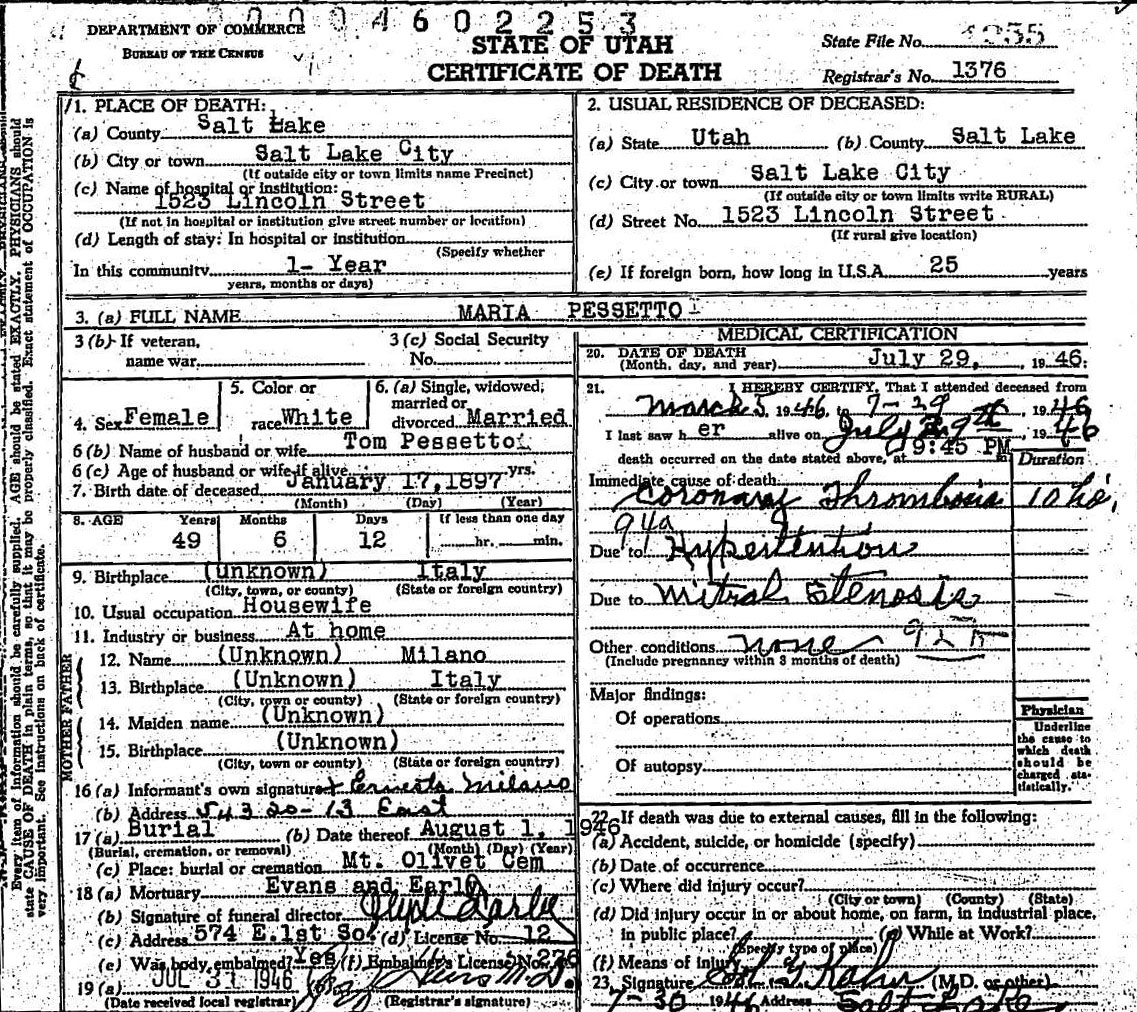 0004602253
DEPARTMENT OF COMMERCE
BUREAU OF THE CENSUS
STATE OF UTAH
CERTIFICATE OF DEATH
State File No.
Registrar's No. 1376
1. PLACE OF DEATH:
(a) County Salt Lake
(b) City or town Salt Lake City
(If outside city or town limits name Precinct)
(c) Name of hospital or institution:
1523 Lincoln Street
(If not in hospital or institution give street number or location)
(d) Length of stay: In hospital or institution
(Specify whether
In this community 1- Year
years, months or days)
2. USUAL RESIDENCE OF DECEASED:
(a) State Utah (b) County Salt Lake
(c) City or town Salt Lake City
(If outside city or town limits write RURAL)
(d) Street No. 1523 Lincoln Street
(If rural give location)
(e) If foreign born, how long in U.S.A. 25 years
3. (a) FULL NAME MARIA PESSETTO
3 (b) If veteran,
name war
3 (c) Social Security
No.
4. Sex Female
5. Color or
race White
6. (a) Single, widowed,
married or
divorced Married
6 (b) Name of husband or wife Tom Pessetto
6 (c) Age of husband or wife if alive yrs.
7. Birth date of deceased January 17, 1897
(Month) (Day) (Year)
8. AGE Years Months Days If less than one day
49 6 12 hr. min.
9. Birthplace (Unknown) Italy
(City, town, or county) (State or foreign country)
10. Usual occupation Housewife
11. Industry or business At home
FATHER
12. Name (Unknown) Milano
13. Birthplace (Unknown) Italy
(City, town or county) (State or foreign country)
MOTHER
14. Maiden name (Unknown)
15. Birthplace (Unknown)
(City, town or county) (State or foreign country)
16 (a) Informant's own signature Ernesto Milano
(b) Address 543 20-13 East
17 (a) Burial (b) Date thereof August 1, 1946
(Burial, cremation, or removal) (Month) (Day) (Year)
(c) Place: burial or cremation Mt. Olivet Cem
18 (a) Mortuary Evans and Early
(b) Signature of funeral director
(c) Address 574 E.1st So. (d) License No. 12
(e) Was body embalmed? Yes (f) Embalmer's License No. 276
19 (a) JUL 31 1946 (b)
(Date received local registrar) (Registrar's signature)
MEDICAL CERTIFICATION
20. DATE OF DEATH
(Month, day, and year) July 29, 1946
21. I HEREBY CERTIFY, That I attended deceased from
March 5 1946, to 7-29, 1946
I last saw her alive on July 29th, 1946
death occurred on the date stated above, at 9:45 PM
Duration
Immediate cause of death
Coronary Thrombosis
94a
Due to Hypertention
Due to Mitral Stenosis
Other conditions none
(Include pregnancy within 3 months of death)
Major findings:
Of operations
Of autopsy
Physician
Underline
the cause to
which death
should be
charged sta-
tistically.
22. If death was due to external causes, fill in the following:
(a) Accident, suicide, or homicide (specify)
(b) Date of occurrence
(c) Where did injury occur?
(City or town) (County) (State)
(d) Did injury occur in or about home, on farm, in industrial place,
in public place? (e) While at Work?
(Specify type of place)
(f) Means of injury
23. Signature Sol G. Kahn (M.D. or other)
7-30 1946 Address Salt Lake
Every item of information should be carefully supplied. AGE should be stated EXACTLY. PHYSICIANS should
state CAUSE OF DEATH in plain terms, so that it may be properly classified. Exact statement of OCCUPATION is
very important. See instructions on back of certificate.